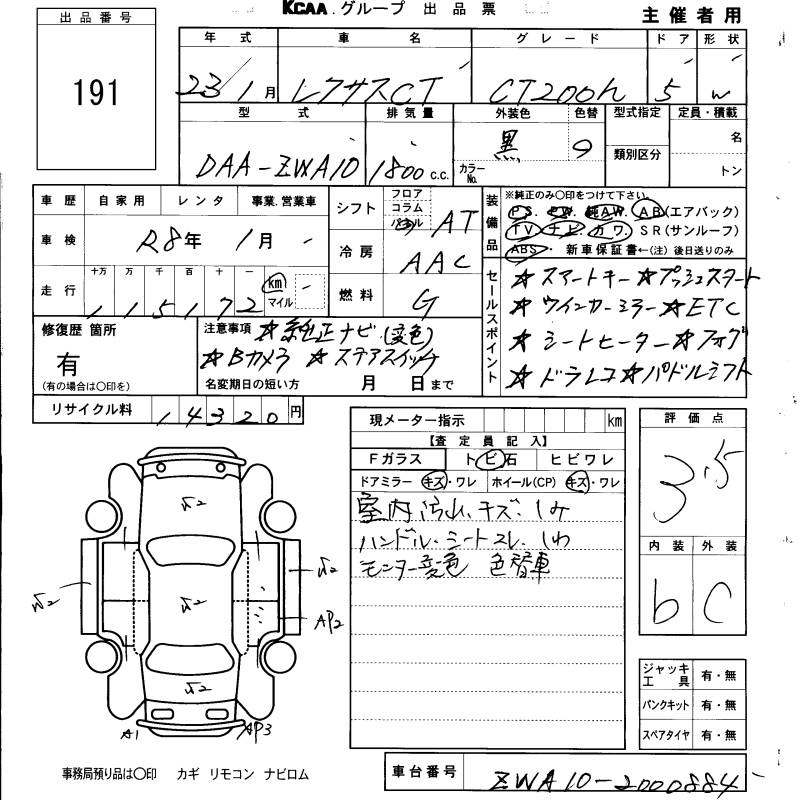 出品番号
191
KCAA.グループ 出品票
主催者用
年式 車名 グレード ドア 形状
23/1月 レクサスCT CT200h 5 W
型式 排気量 外装色 色替 型式指定 定員・積載
DAA-ZWA10 1800c.c. カラーNo. 黒 類別区分 名 トン
車歴 自家用 レンタ 事業.営業車
車検 R8年 1月
走行 十万 万 千 百 十 一
115172 km マイル
シフト フロア コラム パネル AT
冷房 AAC
燃料 G
装備品 ※純正のみ○印をつけて下さい。
PS. PW. 純AW. AB(エアバック)
TV ナビ カワ. SR(サンルーフ)
ABS・ 新車保証書←(注) 後日送りのみ
セールスポイント
☆スマートキー☆プッシュスタート
☆ウインカーミラー☆ETC
☆シートヒーター☆フォグ
☆ドラレコ☆パドルシフト
修復歴 箇所
有
(有の場合は○印を)
注意事項 ☆純正ナビ(変色)
☆Bカメラ ☆ステアスイッチ
名変期日の短い方 月 日まで
リサイクル料 14320円
現メーター指示 km
【査定員記入】
Fガラス トビ石 ヒビワレ
ドアミラー キズ・ワレ ホイール(CP) キズ・ワレ
室内汚れ.キズ.シミ
ハンドル.シートスレ.シワ
モニター変色 色替車
評価点
3.5
内装 外装
b C
ジャッキ工具 有・無
パンクキット 有・無
スペアタイヤ 有・無
AP2
A1 AP3
事務局預り品は○印 カギ リモコン ナビロム
車台番号 ZWA10-2000884